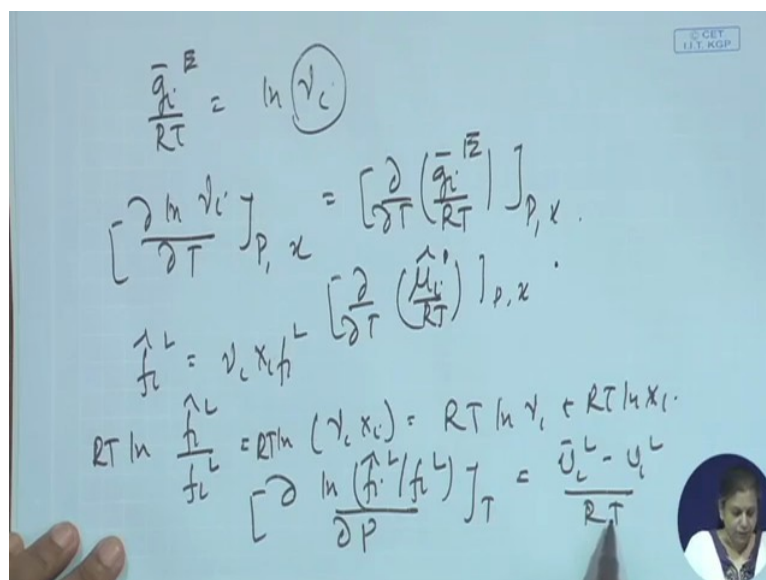 © CET
I.I.T. KGP
ḡᵢᴱ / RT = ln γᵢ
[∂ ln γᵢ / ∂T]P, x = [∂/∂T (ḡᵢᴱ / RT)]P, x .
[∂/∂T (μ̂ᵢ / RT)]P, x .
f̂ᵢᴸ = γᵢ xᵢ fᵢᴸ
RT ln f̂ᵢᴸ / fᵢᴸ = RT ln (γᵢ xᵢ) = RT ln γᵢ + RT ln xᵢ.
[∂ ln (f̂ᵢᴸ / fᵢᴸ) / ∂P]T = (ῡᵢᴸ - υᵢᴸ) / RT